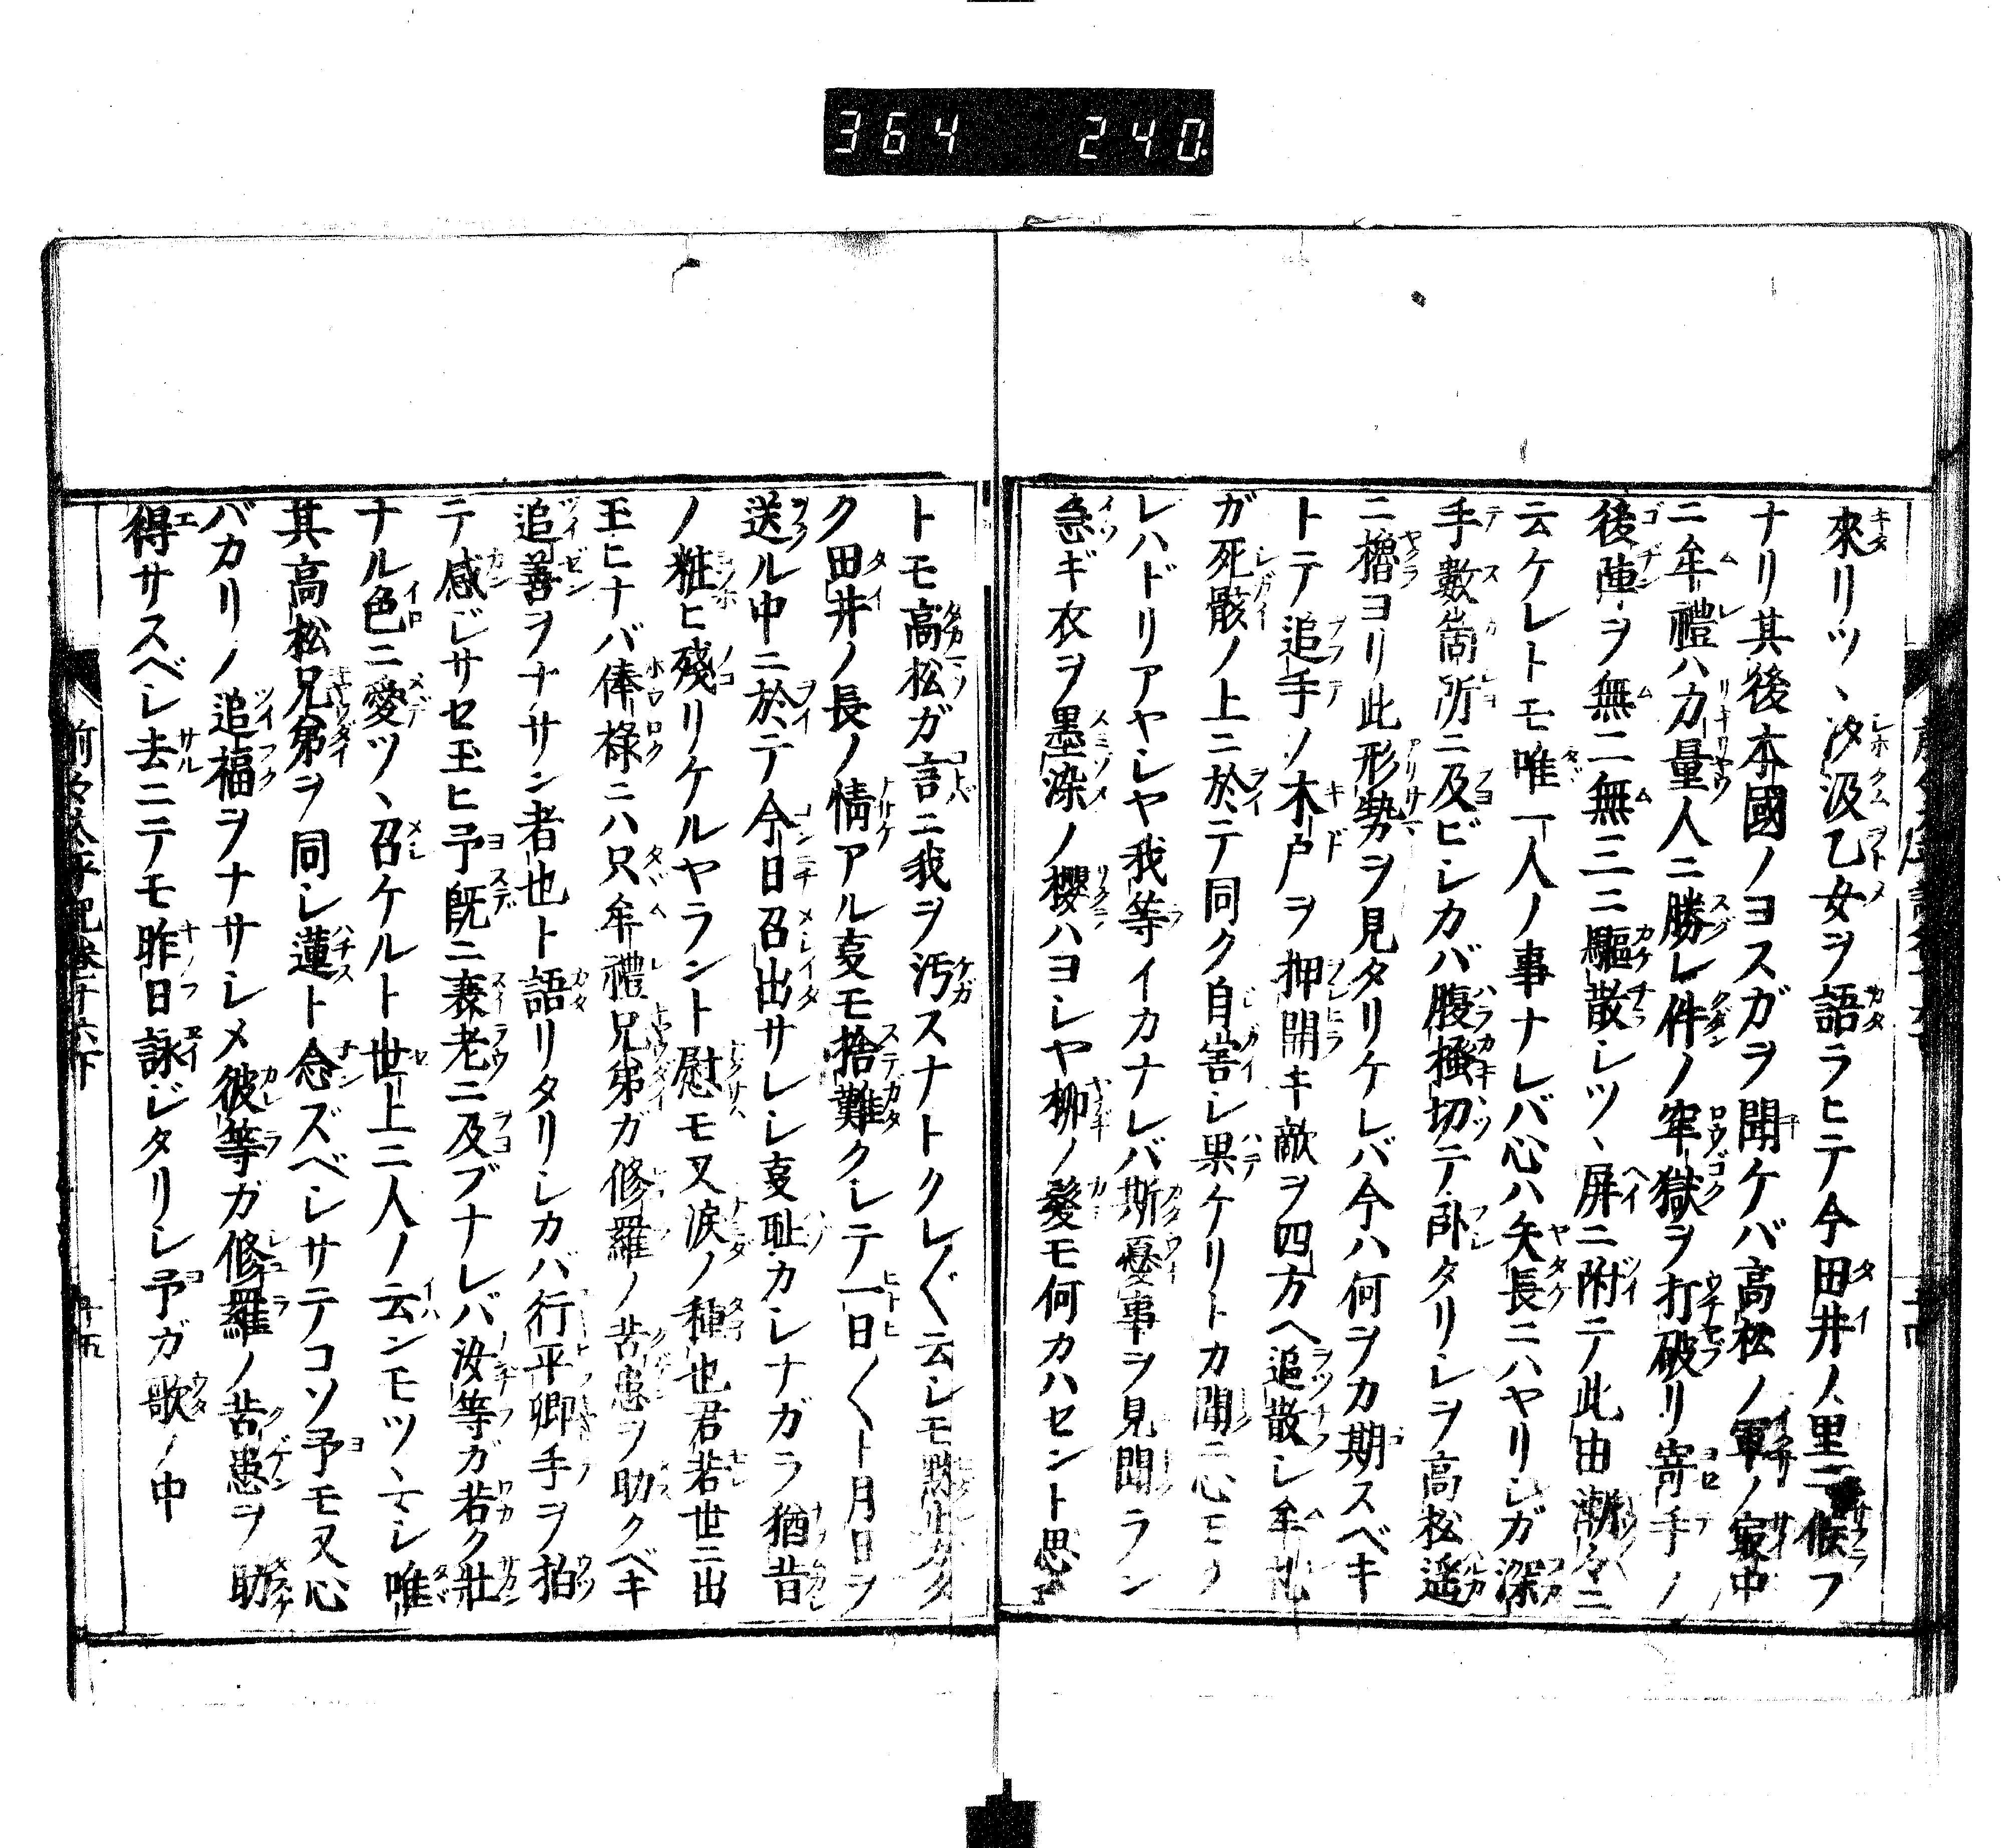 364 240
來リツヽ汐汲乙女ヲ語ラヒテ今田井ノ里ニ候フ
ナリ其後本國ノヨスガヲ聞ケバ高松ノ軍ノ寂中
ニ牟禮ハ力量人ニ勝レ件ノ牢獄ヲ打破リ寄手ノ
後陣ヲ無二無三ニ驅散シツヽ屏ニ附テ此由漸々ニ
云ケレトモ唯一人ノ事ナレバ心ハ矢長ニハヤリシガ深
手數箇所ニ及ビシカバ腹搔切テ臥タリシヲ高松遥
ニ櫓ヨリ此形勢ヲ見タリケレバ今ハ何ヲカ期スベキ
トテ追手ノ木戸ヲ押開キ敵ヲ四方ヘ追散シ牟礼
ガ死骸ノ上ニ於テ同ク自害シ果ケリトカ聞ニ心モク
レハドリアヤシヤ我等イカナレバ斯憂事ヲ見聞ラン
急ギ衣ヲ墨染ノ櫻ハヨシヤ柳ノ髮モ何カハセント思
トモ高松ガ言ニ我ヲ汚スナトクレ〲云シモ黙止カ
ク田井ノ長ノ情アル叓モ捨難クシテ一日〱ト月日ヲ
送ル中ニ於テ今日召出サレシ叓耻カシナガラ猶昔
ノ粧ヒ殘リケルヤラント慰モ又涙ノ種也君若世ニ出
玉ヒナバ俸祿ニハ只牟禮兄弟ガ修羅ノ苦患ヲ助クベキ
追善ヲナサン者也ト語リタリシカバ行平卿手ヲ拍
テ感ジサセ玉ヒ予既ニ衰老ニ及ブナレバ汝等ガ若ク壯
ナル色ニ愛ツヽ召ケルト世上ニ人ノ云ンモツヽマシ唯
其高松兄弟ヲ同シ蓮ト念ズベシサテコソ予モ又心
バカリノ追福ヲナサシメ彼等ガ修羅ノ苦患ヲ助
得サスベシ去ニテモ昨日詠ジタリシ予ガ歌ノ中
前々太平記卷十六下 十五